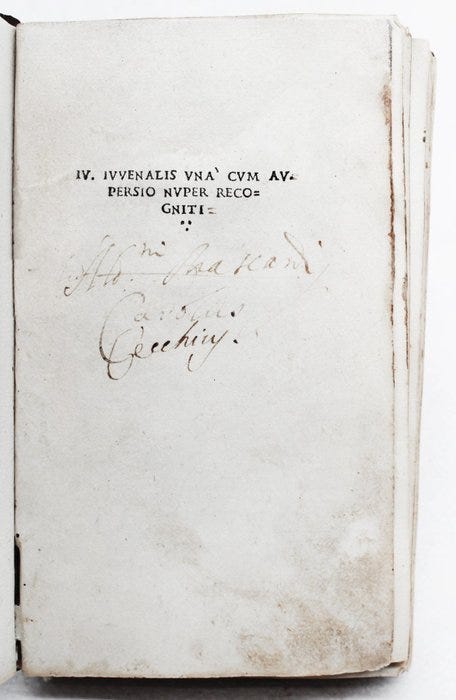 IV. IVVENALIS VNA` CVM AV=
PERSIO NVPER RECO=
GNITI=
Carolus
Cecchiny.